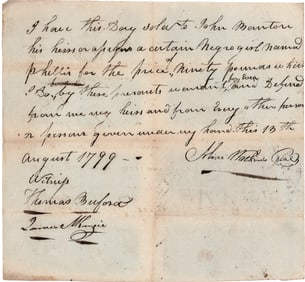 I have this Day sold to John Banton
his heirs or assigns a certain Negro girl Named
Phillis for the price Ninety pounds which
I Do by these presents warrant and Defend
from me my heirs and from Every other person
or persons given under my hand this 13th
August 1799
Witness
Thomas Buford
James